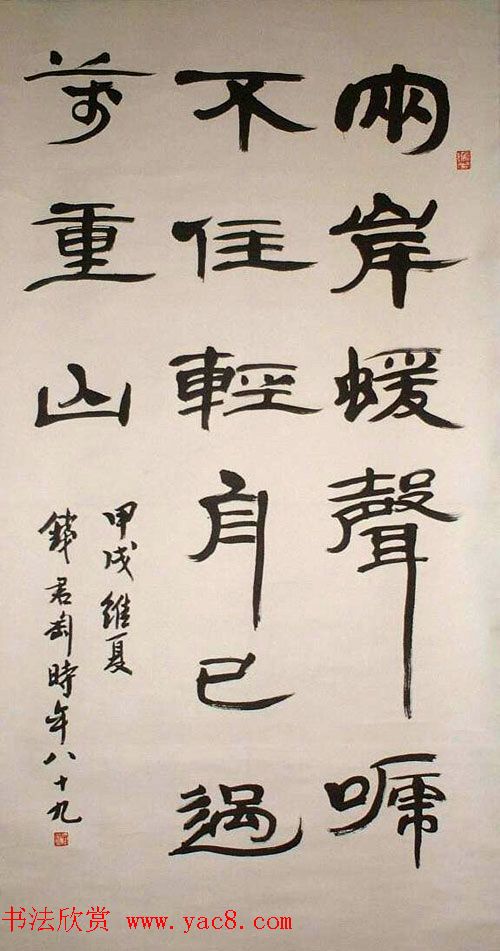 兩岸蝯聲嗁
不住輕舟已過
萬重山
甲戌維夏
錢君匋時年八十九
书法欣赏 www.yac8.com